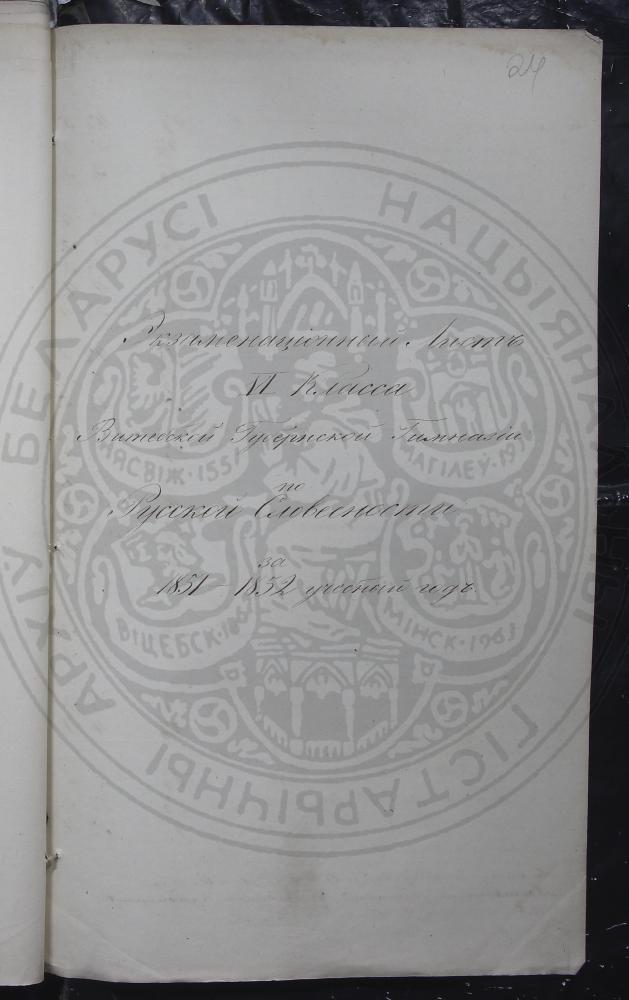 24
Экзаменаціонный Листъ
VI Класса
Витебской Губернской Гимназіи
по
Русской Словесности
за
1851–1852 учебный годъ.
НАЦЫЯНАЛЬНЫ ГІСТАРЫЧНЫ АРХІЎ БЕЛАРУСІ
НЯСВІЖ·1551
МАГІЛЕЎ·19
ВІЦЕБСК·18
МІНСК·1963